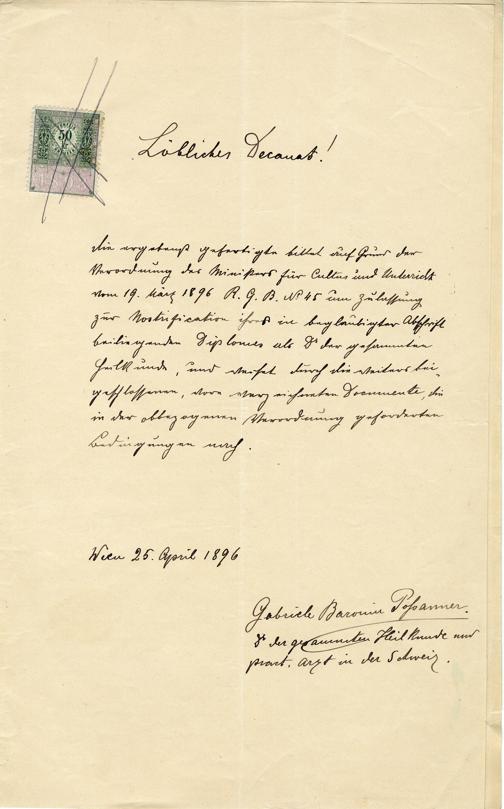 50
Löbliches Decanat!
Die ergebenst gefertigte bittet auf Grund der
Verordnung des Ministers für Cultus und Unterricht
vom 19. März 1896 R. G. B. № 45 um Zulassung
zur Nostrification ihres in beglaubigter Abschrift
beiliegenden Diplomes als Dr der gesammten
Heilkunde, und weiset durch die weiters bei-
geschlossenen, vorn verzeichneten Documente, die
in der obbezogenen Verordnung geforderten
Bedingungen nach.
Wien 25. April 1896
Gabriele Baronin Poßanner.
Dr der gesammten Heilkunde und
pract. Arzt in der Schweiz.